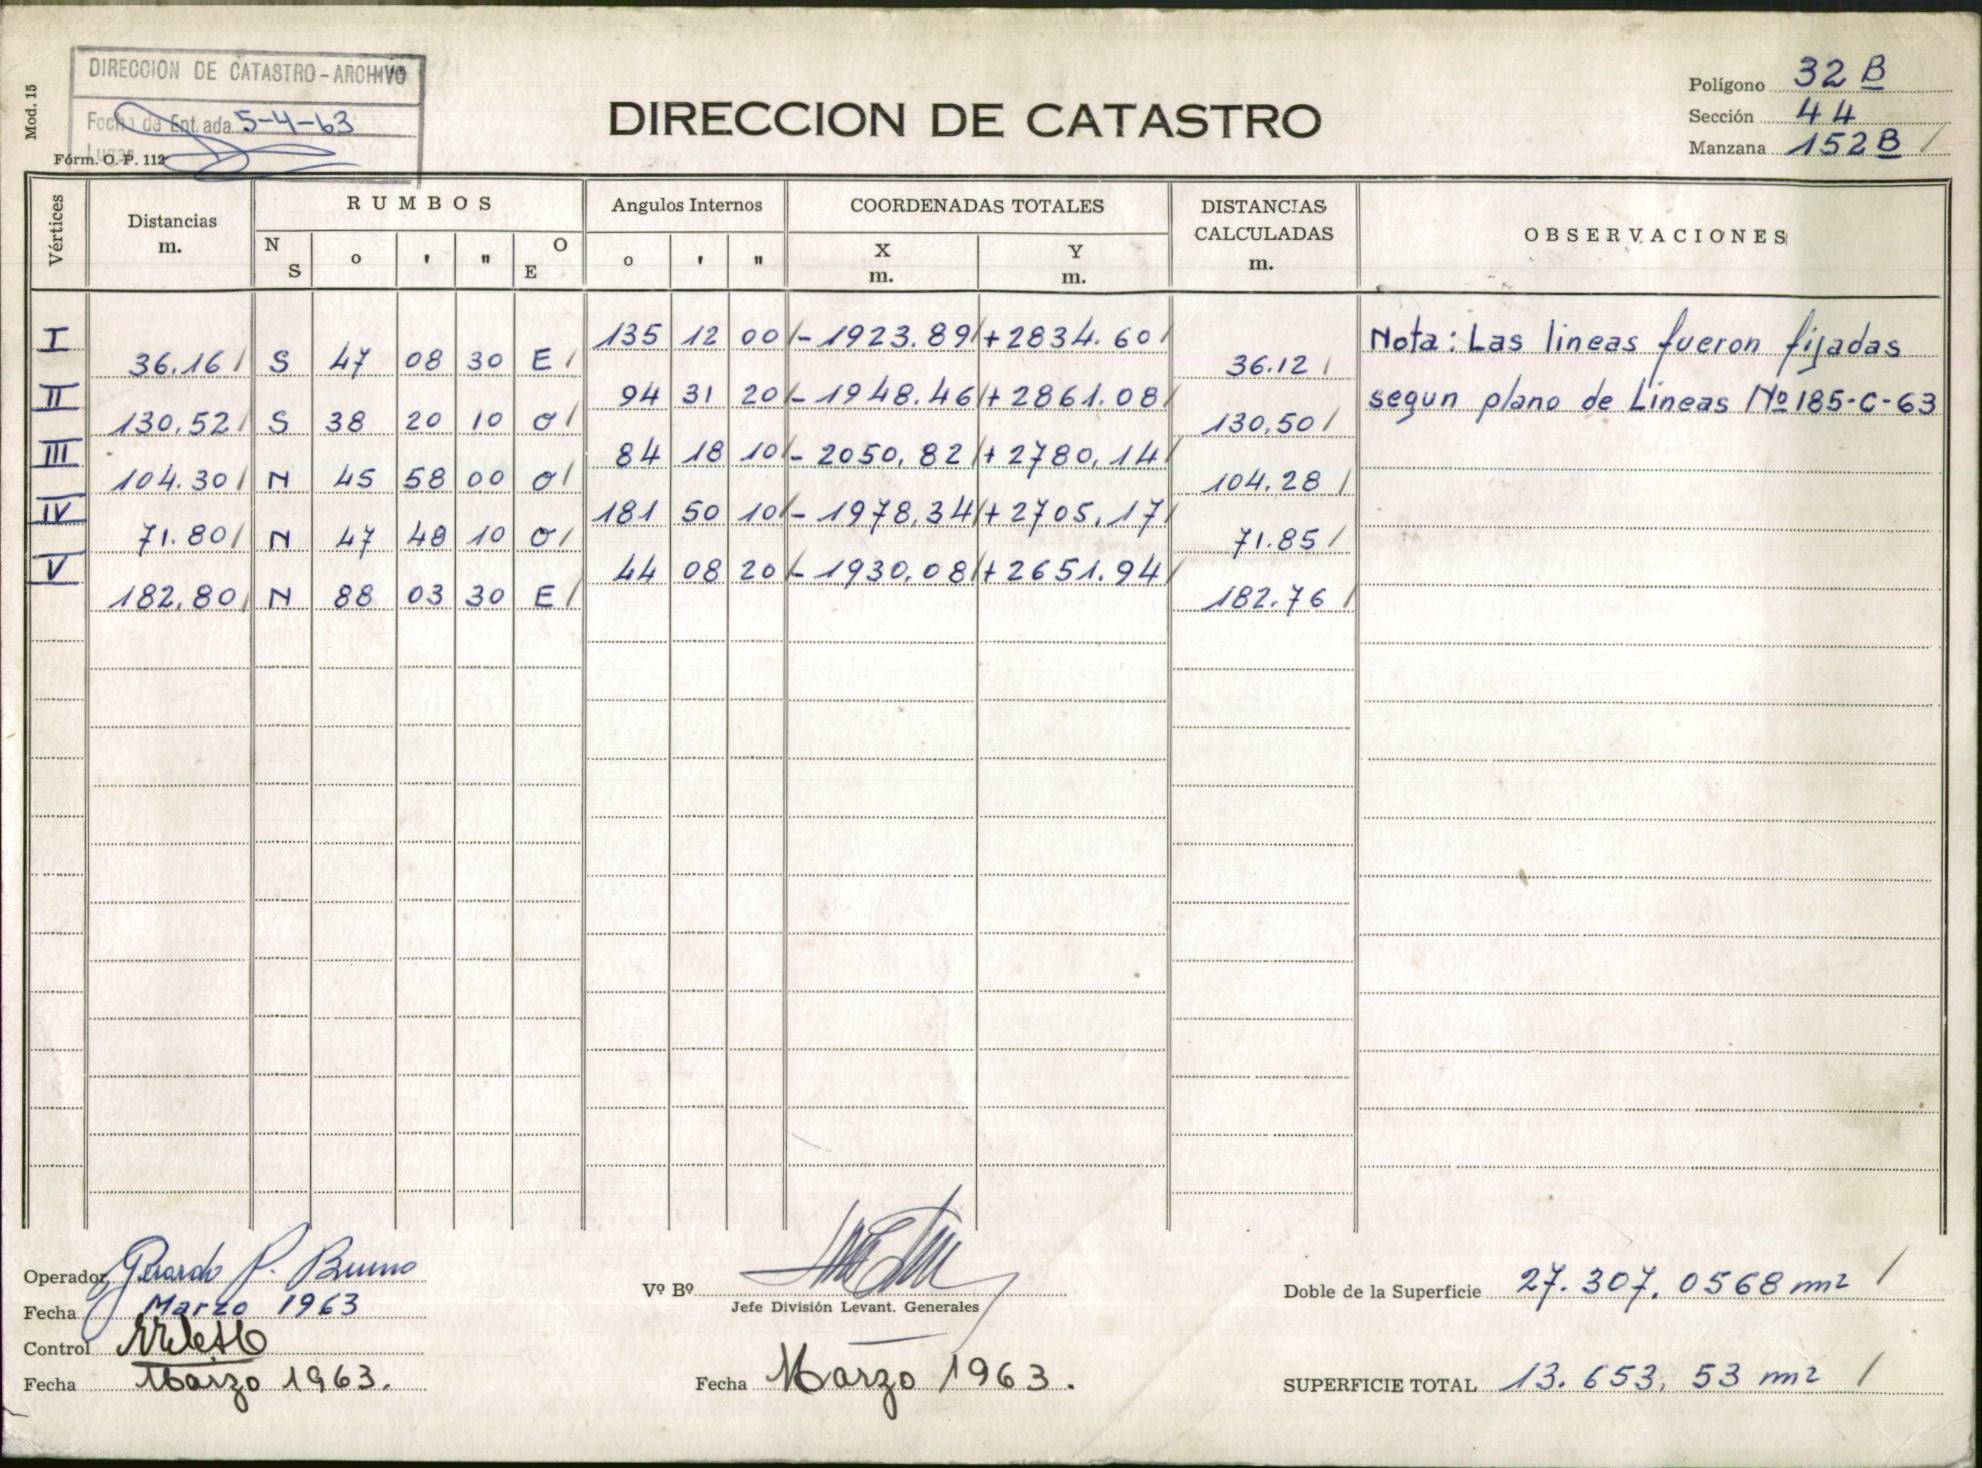 DIRECCION DE CATASTRO - ARCHIVO
Fecha de Entrada 5-4-63
Lugar
Mod. 15
Fórm. O. P. 112
DIRECCION DE CATASTRO
Polígono 32 B
Sección 44
Manzana 152 B /
Vértices
Distancias
m.
RUMBOS
N S ° ' " O E
Angulos Internos
° ' "
COORDENADAS TOTALES
X
m.
Y
m.
DISTANCIAS
CALCULADAS
m.
OBSERVACIONES
I 135 12 00 / - 1923.89 / + 2834.60 /
36.16 / S 47 08 30 E / 36.12 /
II 94 31 20 / - 1948.46 / + 2861.08 /
130,52 / S 38 20 10 O / 130,50 /
III 84 18 10 / - 2050,82 / + 2780,14 /
104.30 / N 45 58 00 O / 104.28 /
IV 181 50 10 / - 1978,34 / + 2705,17 /
71.80 / N 47 48 10 O / 71.85 /
V 44 08 20 / - 1930,08 / + 2651.94 /
182,80 / N 88 03 30 E / 182.76 /
Nota: Las lineas fueron fijadas
segun plano de Lineas Nº 185-C-63
Operador Gerardo P. Bruno
Fecha Marzo 1963
Control
Fecha Marzo 1963.
Vº Bº
Jefe División Levant. Generales
Fecha Marzo 1963.
Doble de la Superficie 27.307,0568 m2 /
SUPERFICIE TOTAL 13.653,53 m2 /